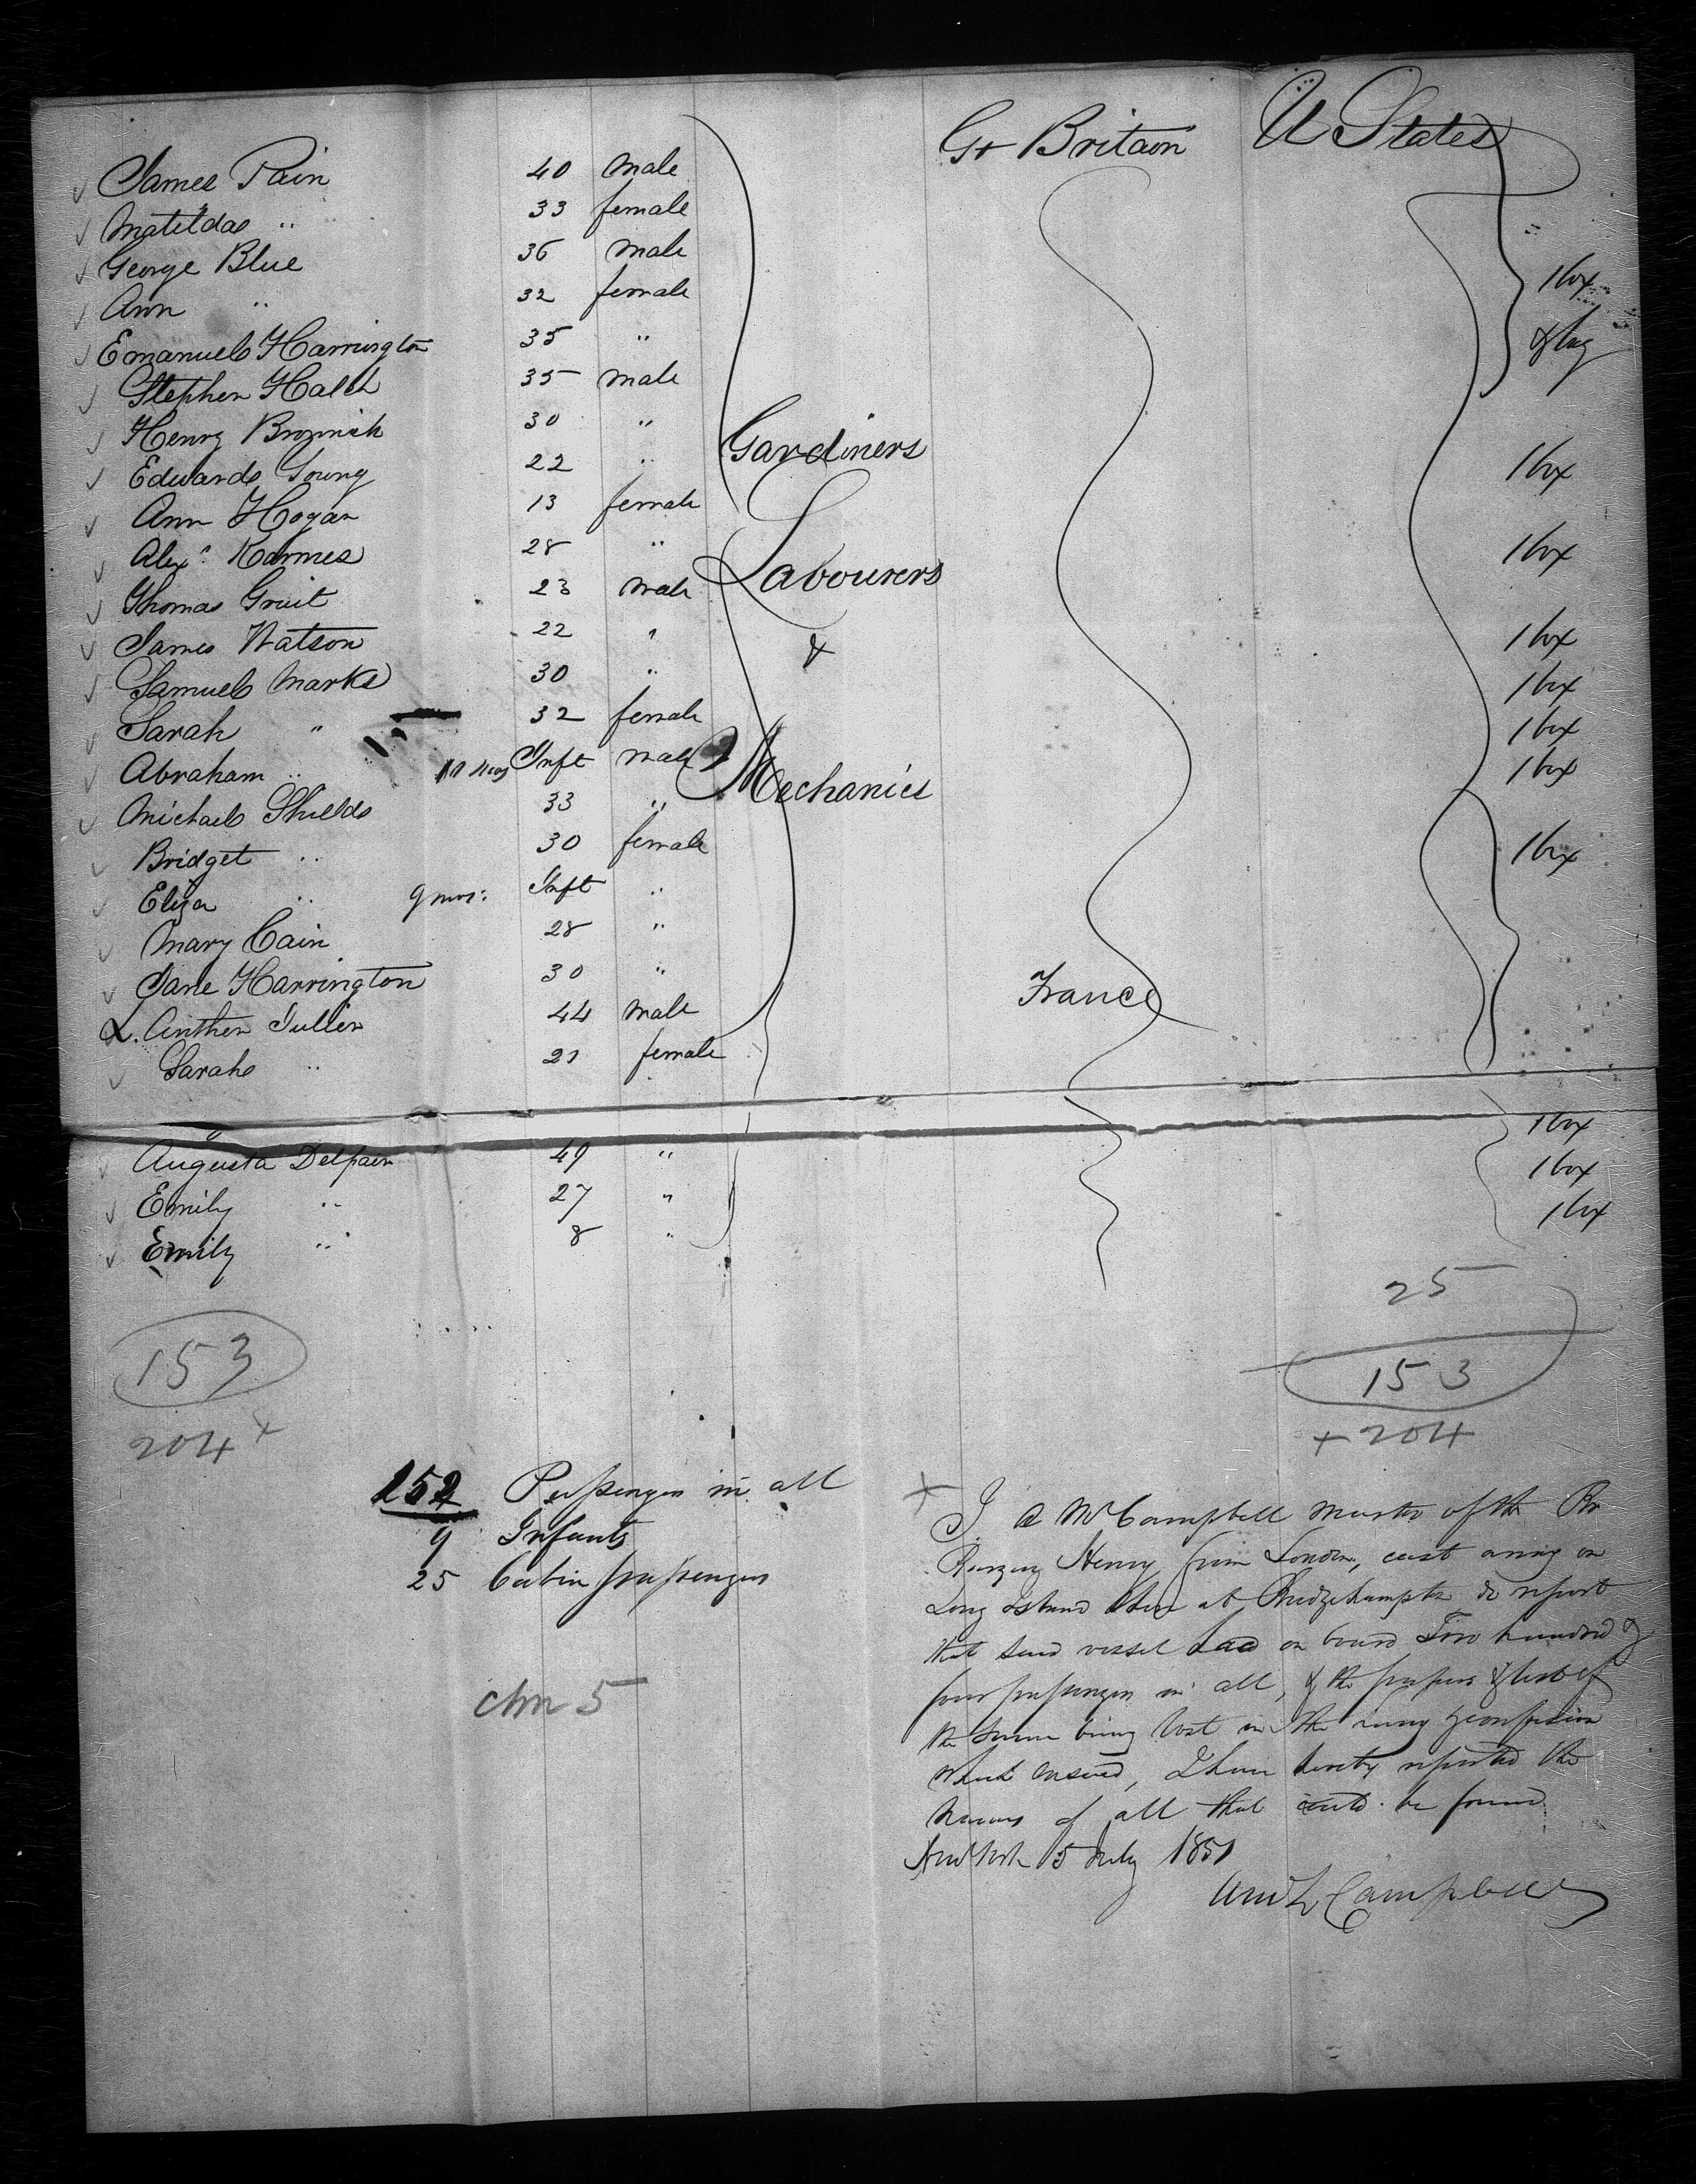 Gt Britain U States
James Pain 40 male
Matilda " 33 female
George Blue 36 male 1 box
Ann " 32 female
Emanuel Harrington 35 " & bag
Stephen 35 male
Henry 30 "
Gardiners
Edward Young 22 " 1 box
Ann Hogan 13 female
Alexr. Karmes 28 " 1 box
Labourers
Thomas Gruit 23 male
James Watson 22 " 1 box
&
Samuel Marks 30 " 1 box
Sarah " 32 female 1 box
Abraham " 11 mos Inft male 1 box
Mechanics
Michael Shields 33 "
Bridget " 30 female 1 box
Eliza " 9 mos: Inft "
Mary Cain 28 "
Jane Harrington 30 "
France
L. Anther Tuller 44 male
Sarah " 21 female
1 box
Augusta Delpaen 49 " 1 box
Emily " 27 " 1 box
Emily " 8 "
25
153 153
204 + + 204
152 Passengers in all
9 Infants
25 Cabin passengers
chn 5
+ I A McCampbell Master of the
Henry from London, cast away on
Long Island Shore at Bridgehampton do report
that said vessel had on board Two hundred &
four passengers in all, & the papers & list of
the same being lost in the hurry & confusion
which ensued, I have hereby reported the
names of all that could be found
New York 5 July 1851
Campbell